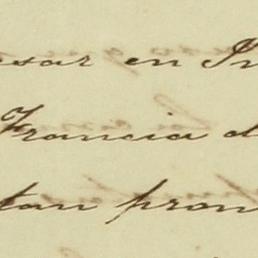 esar en In
Francia d
tan pron